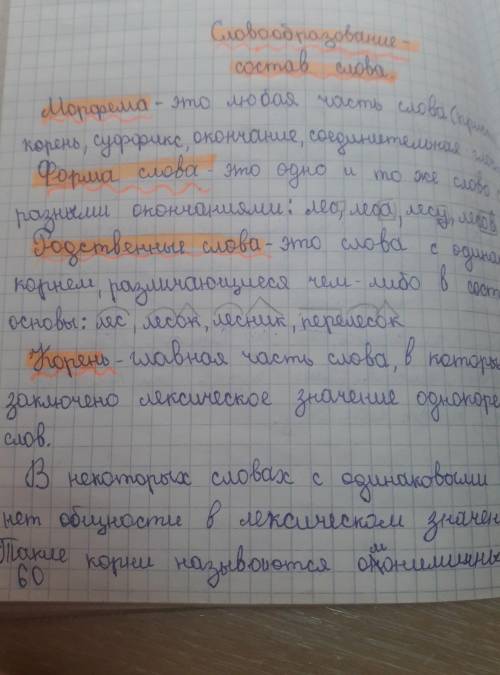 Словообразование -
состав слова.
Морфема - это любая часть слова
корень, суффикс, окончание, соединительная
Форма слова - это одно и то же слово
разными окончаниями: лес, леса, лесу,
Родственные слова - это слова с одинак
корнем, различающиеся чем-либо в сост
основы: лес, лесок, лесник, перелесок
Корень - главная часть слова, в котор
заключено лексическое значение однокоре
слов.
В некоторых словах с одинаковыми
нет общности в лексическом значен
Такие корни называются омонимичны
60